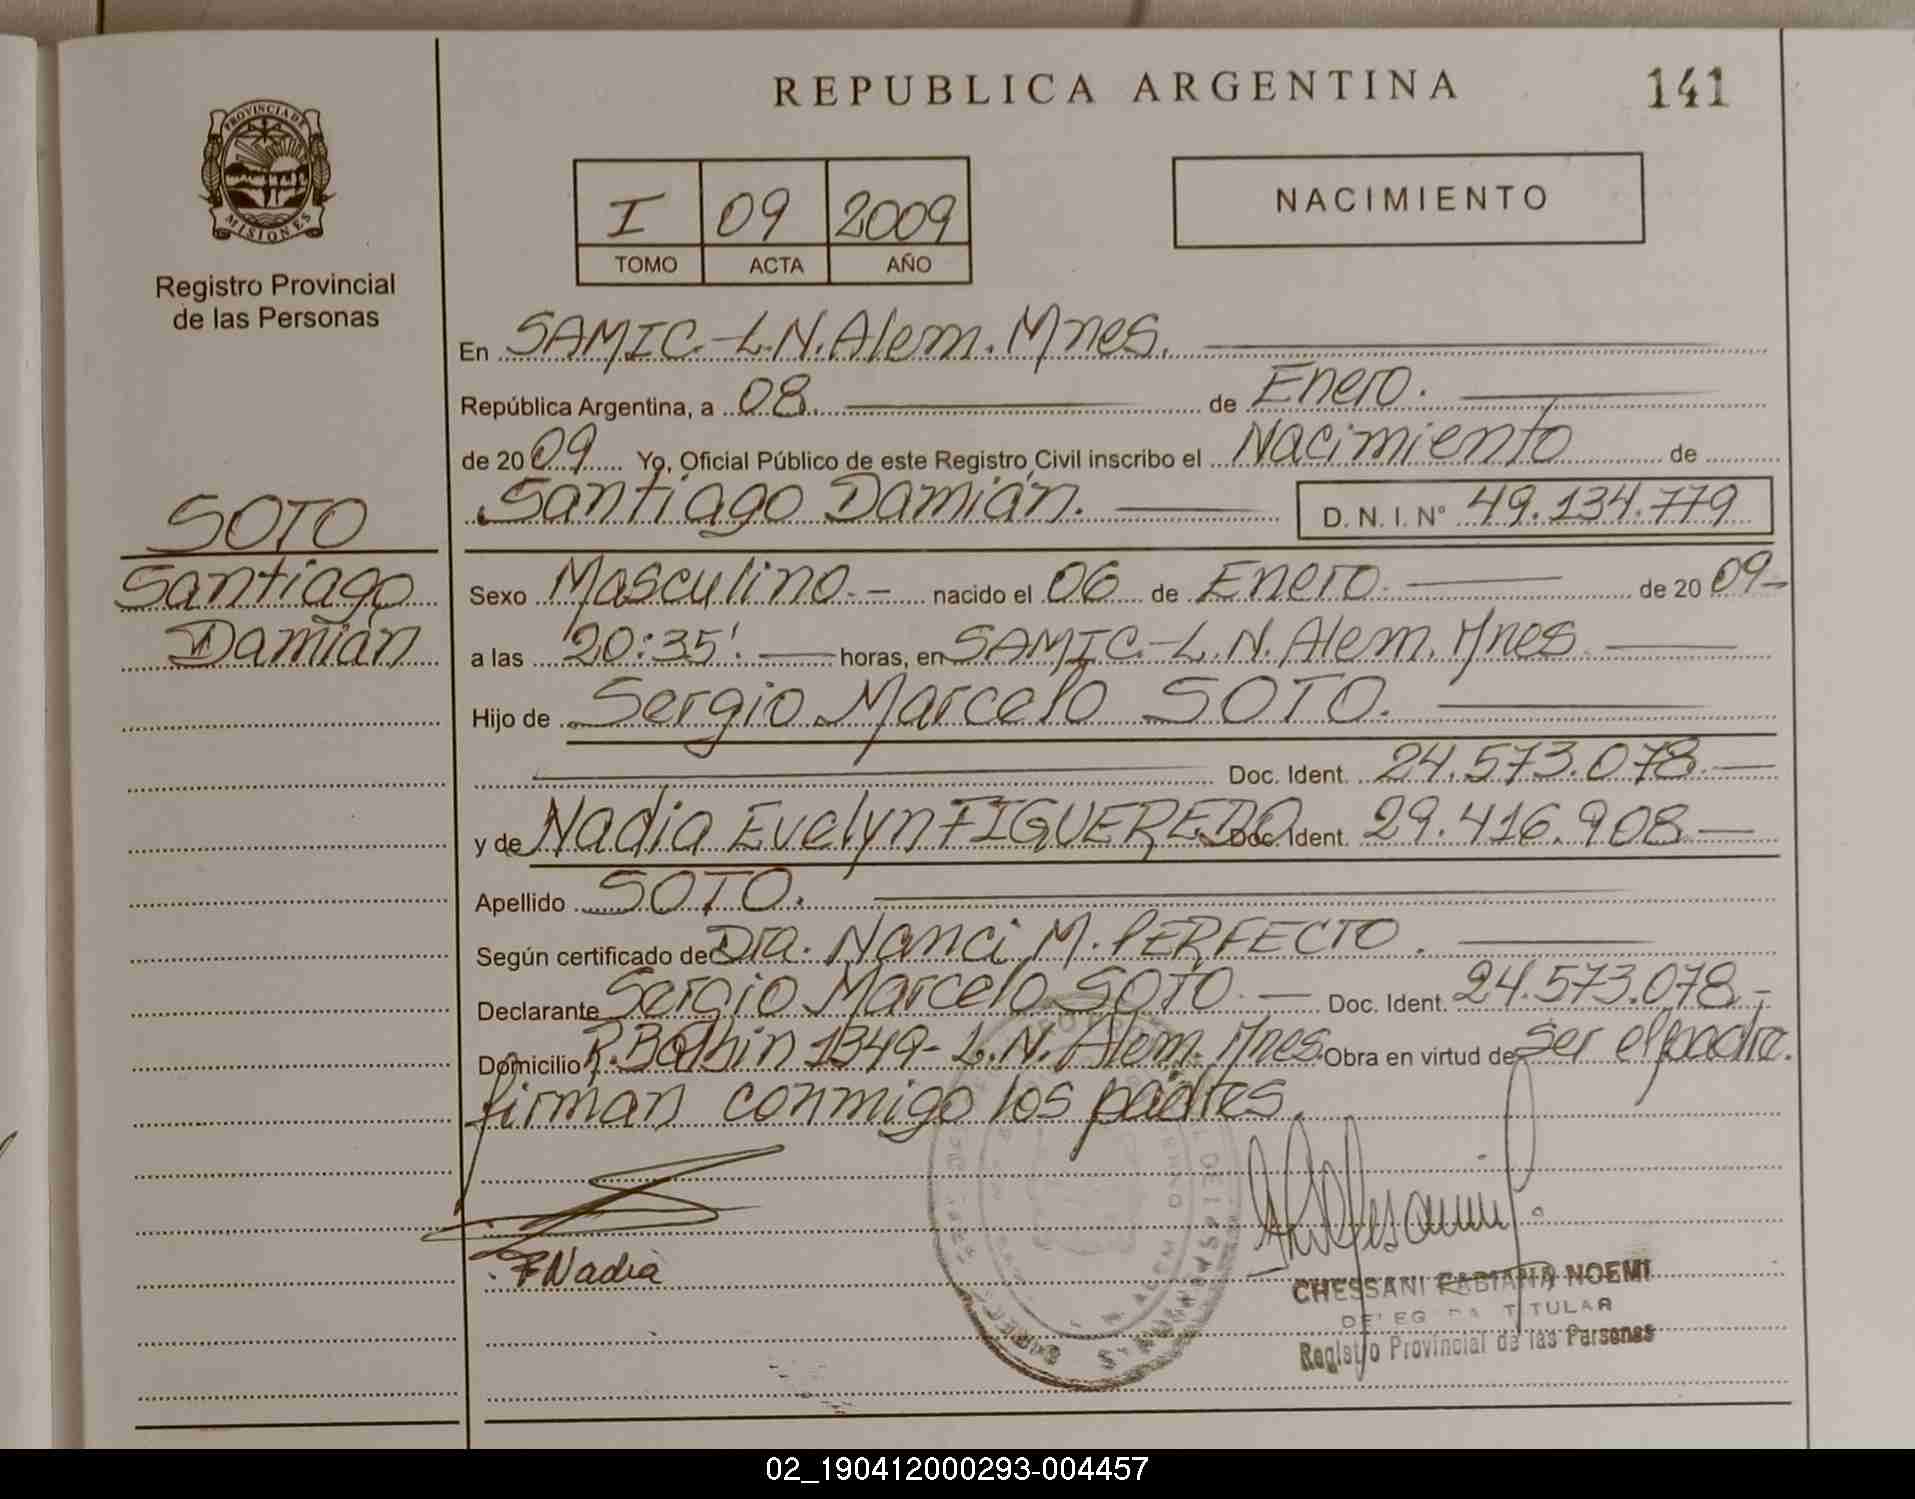 REPUBLICA ARGENTINA
141
PROVINCIA DE
MISIONES
Registro Provincial
de las Personas
I 09 2009
TOMO ACTA AÑO
NACIMIENTO
En SAMIC.-L.N.Alem.Mnes.
República Argentina, a 08. de Enero.
de 2009 Yo, Oficial Público de este Registro Civil inscribo el Nacimiento de
Santiago Damián. D. N. I. N° 49.134.779
SOTO
Santiago
Damián
Sexo Masculino.- nacido el 06 de Enero. de 2009-
a las 20:35'. horas, en SAMIC.-L.N.Alem.Mnes
Hijo de Sergio Marcelo SOTO.
Doc. Ident. 24.573.078.-
y de Nadia Evelyn FIGUEREDO Doc. Ident. 29.416.908-
Apellido SOTO.
Según certificado de Dra. Nanci M. PERFECTO.
Declarante Sergio Marcelo SOTO.- Doc. Ident. 24.573.078.-
Domicilio R.Balbin 1349- L.N.Alem.Mnes. Obra en virtud de ser el padre.
firman conmigo los padres.
F Nadia
CHESSANI FABIANA NOEMI
TITULAR
Registro Provincial de las Personas
02_190412000293-004457